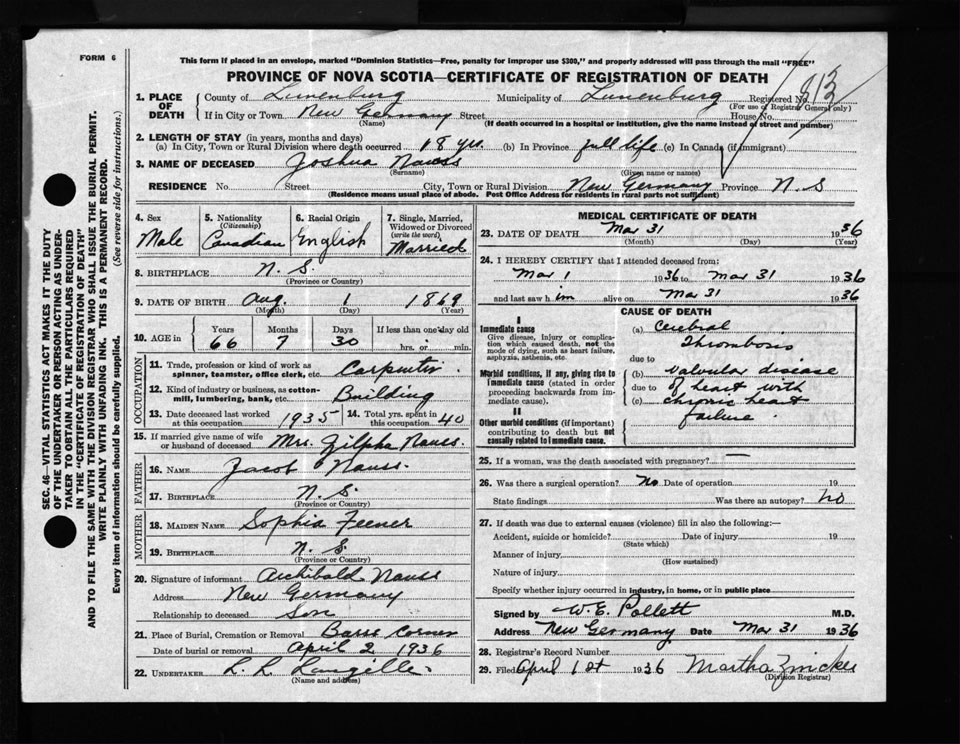 FORM 6
This form if placed in an envelope, marked "Dominion Statistics—Free, penalty for improper use $300," and properly addressed will pass through the mail "FREE"
PROVINCE OF NOVA SCOTIA—CERTIFICATE OF REGISTRATION OF DEATH
SEC. 46—VITAL STATISTICS ACT MAKES IT THE DUTY
OF THE UNDERTAKER OR PERSON ACTING AS UNDER-
TAKER TO OBTAIN ALL THE PARTICULARS REQUIRED
IN THE "CERTIFICATE OF REGISTRATION OF DEATH"
AND TO FILE THE SAME WITH THE DIVISION REGISTRAR WHO SHALL ISSUE THE BURIAL PERMIT.
WRITE PLAINLY WITH UNFADING INK. THIS IS A PERMANENT RECORD.
Every item of information should be carefully supplied. (See reverse side for instructions.)
1. PLACE OF DEATH County of Lunenburg Municipality of Lunenburg Registered No. 813
(For use of Registrar General only)
If in City or Town New Germany Street House No.
(Name) (If death occurred in a hospital or institution, give the name instead of street and number)
2. LENGTH OF STAY (in years, months and days)
(a) In City, Town or Rural Division where death occurred 18 yrs. (b) In Province full life (c) In Canada (if immigrant)
3. NAME OF DECEASED Joshua Nauss
(Surname) (Given name or names)
RESIDENCE No. Street City, Town or Rural Division New Germany Province N. S
(Residence means usual place of abode. Post Office Address for residents in rural parts not sufficient)
4. Sex Male
5. Nationality (Citizenship) Canadian
6. Racial Origin English
7. Single, Married, Widowed or Divorced (write the word) Married
8. BIRTHPLACE N. S.
(Province or Country)
9. DATE OF BIRTH Aug. 1 1869
(Month) (Day) (Year)
10. AGE in Years 66 Months 7 Days 30 If less than one day old hrs. or min.
OCCUPATION
11. Trade, profession or kind of work as spinner, teamster, office clerk, etc. Carpenter
12. Kind of industry or business, as cotton-mill, lumbering, bank, etc. Building
13. Date deceased last worked at this occupation 1935 14. Total yrs. spent in this occupation 40
15. If married give name of wife or husband of deceased Mrs. Zilpha Nauss.
FATHER
16. NAME Jacob Nauss.
17. BIRTHPLACE N. S.
(Province or Country)
MOTHER
18. MAIDEN NAME Sophia Feener
19. BIRTHPLACE N. S.
(Province or Country)
20. Signature of informant Archibald Nauss
Address New Germany
Relationship to deceased Son
21. Place of Burial, Cremation or Removal Barss Corner
Date of burial or removal April 2 1936
22. UNDERTAKER L. L. Langille
(Name and address)
MEDICAL CERTIFICATE OF DEATH
23. DATE OF DEATH Mar 31 1936
(Month) (Day) (Year)
24. I HEREBY CERTIFY that I attended deceased from:
Mar 1 1936 to Mar 31 1936
and last saw h im alive on Mar 31 1936
I
Immediate cause
Give disease, injury or complication which caused death, not the mode of dying, such as heart failure, asphyxia, asthenia, etc.
Morbid conditions, if any, giving rise to immediate cause (stated in order proceeding backwards from immediate cause).
II
Other morbid conditions (if important) contributing to death but not causally related to immediate cause.
CAUSE OF DEATH
(a) Cerebral
Thrombosis
due to
(b) valvular disease
due to of heart with
(c) chronic heart
failure.
25. If a woman, was the death associated with pregnancy? —
26. Was there a surgical operation? No Date of operation 19
State findings Was there an autopsy? No
27. If death was due to external causes (violence) fill in also the following:—
Accident, suicide or homicide? Date of injury 19
(State which)
Manner of injury
(How sustained)
Nature of injury
Specify whether injury occurred in industry, in home, or in public place
Signed by W. E. Pollett M.D.
Address New Germany Date Mar 31 1936
28. Registrar's Record Number
29. Filed April 1st 1936 Martha Zwicker
(Division Registrar)